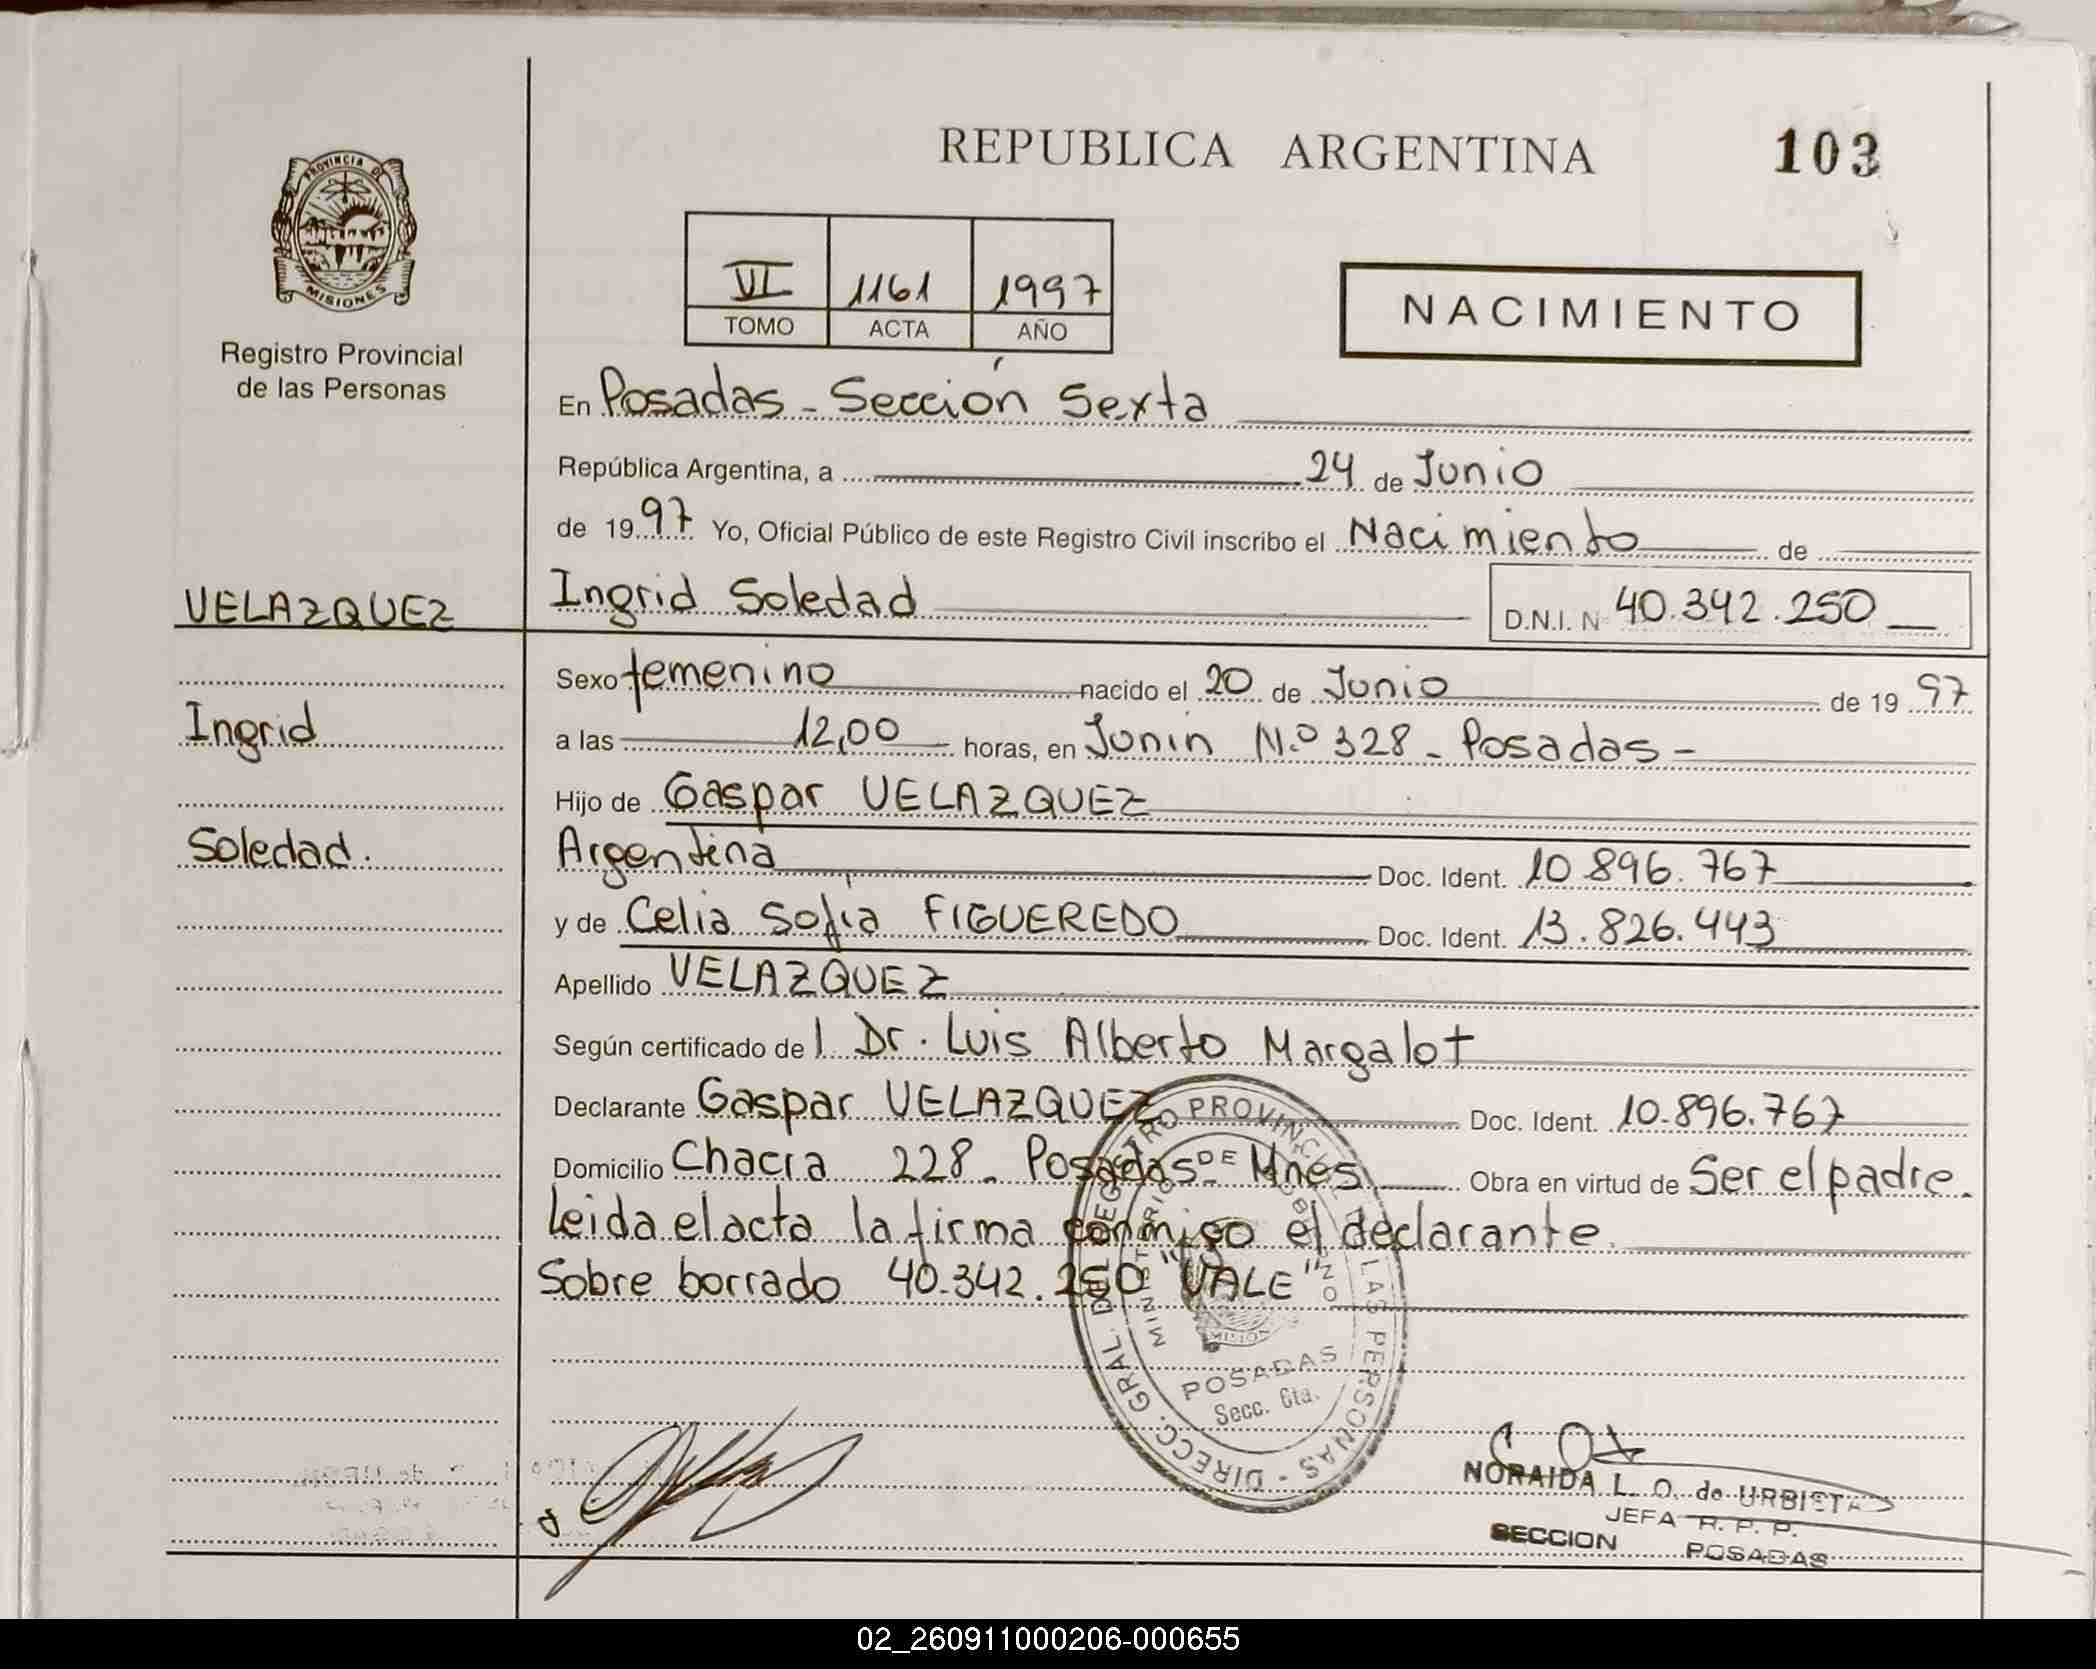 REPUBLICA ARGENTINA 103
PROVINCIA DE
MISIONES
Registro Provincial
de las Personas
VI 1161 1997
TOMO ACTA AÑO
NACIMIENTO
En Posadas - Sección Sexta
República Argentina, a 24 de Junio
de 1997 Yo, Oficial Público de este Registro Civil inscribo el Nacimiento de
VELAZQUEZ Ingrid Soledad D.N.I. Nº 40.342.250
Sexo femenino nacido el 20 de Junio de 1997
Ingrid a las 12,00 horas, en Junin N.º 328 - Posadas -
Hijo de Gaspar VELAZQUEZ
Soledad. Argentina Doc. Ident. 10.896.767
y de Celia Sofía FIGUEREDO Doc. Ident. 13.826.443
Apellido VELAZQUEZ
Según certificado del Dr. Luis Alberto Margalot
Declarante Gaspar VELAZQUEZ Doc. Ident. 10.896.767
Domicilio Chacra 228 - Posadas - Mnes Obra en virtud de Ser el padre.
Leida el acta la firma conmigo el declarante
Sobre borrado 40.342.250 "VALE"
DIRECC. GRAL. DEL REGISTRO PROVINCIAL DE LAS PERSONAS -
MINISTERIO DE GOBIERNO
POSADAS
Secc. 6ta.
NORAIDA L. O. de URBIETA
JEFA R. P. P.
SECCION POSADAS
02_260911000206-000655